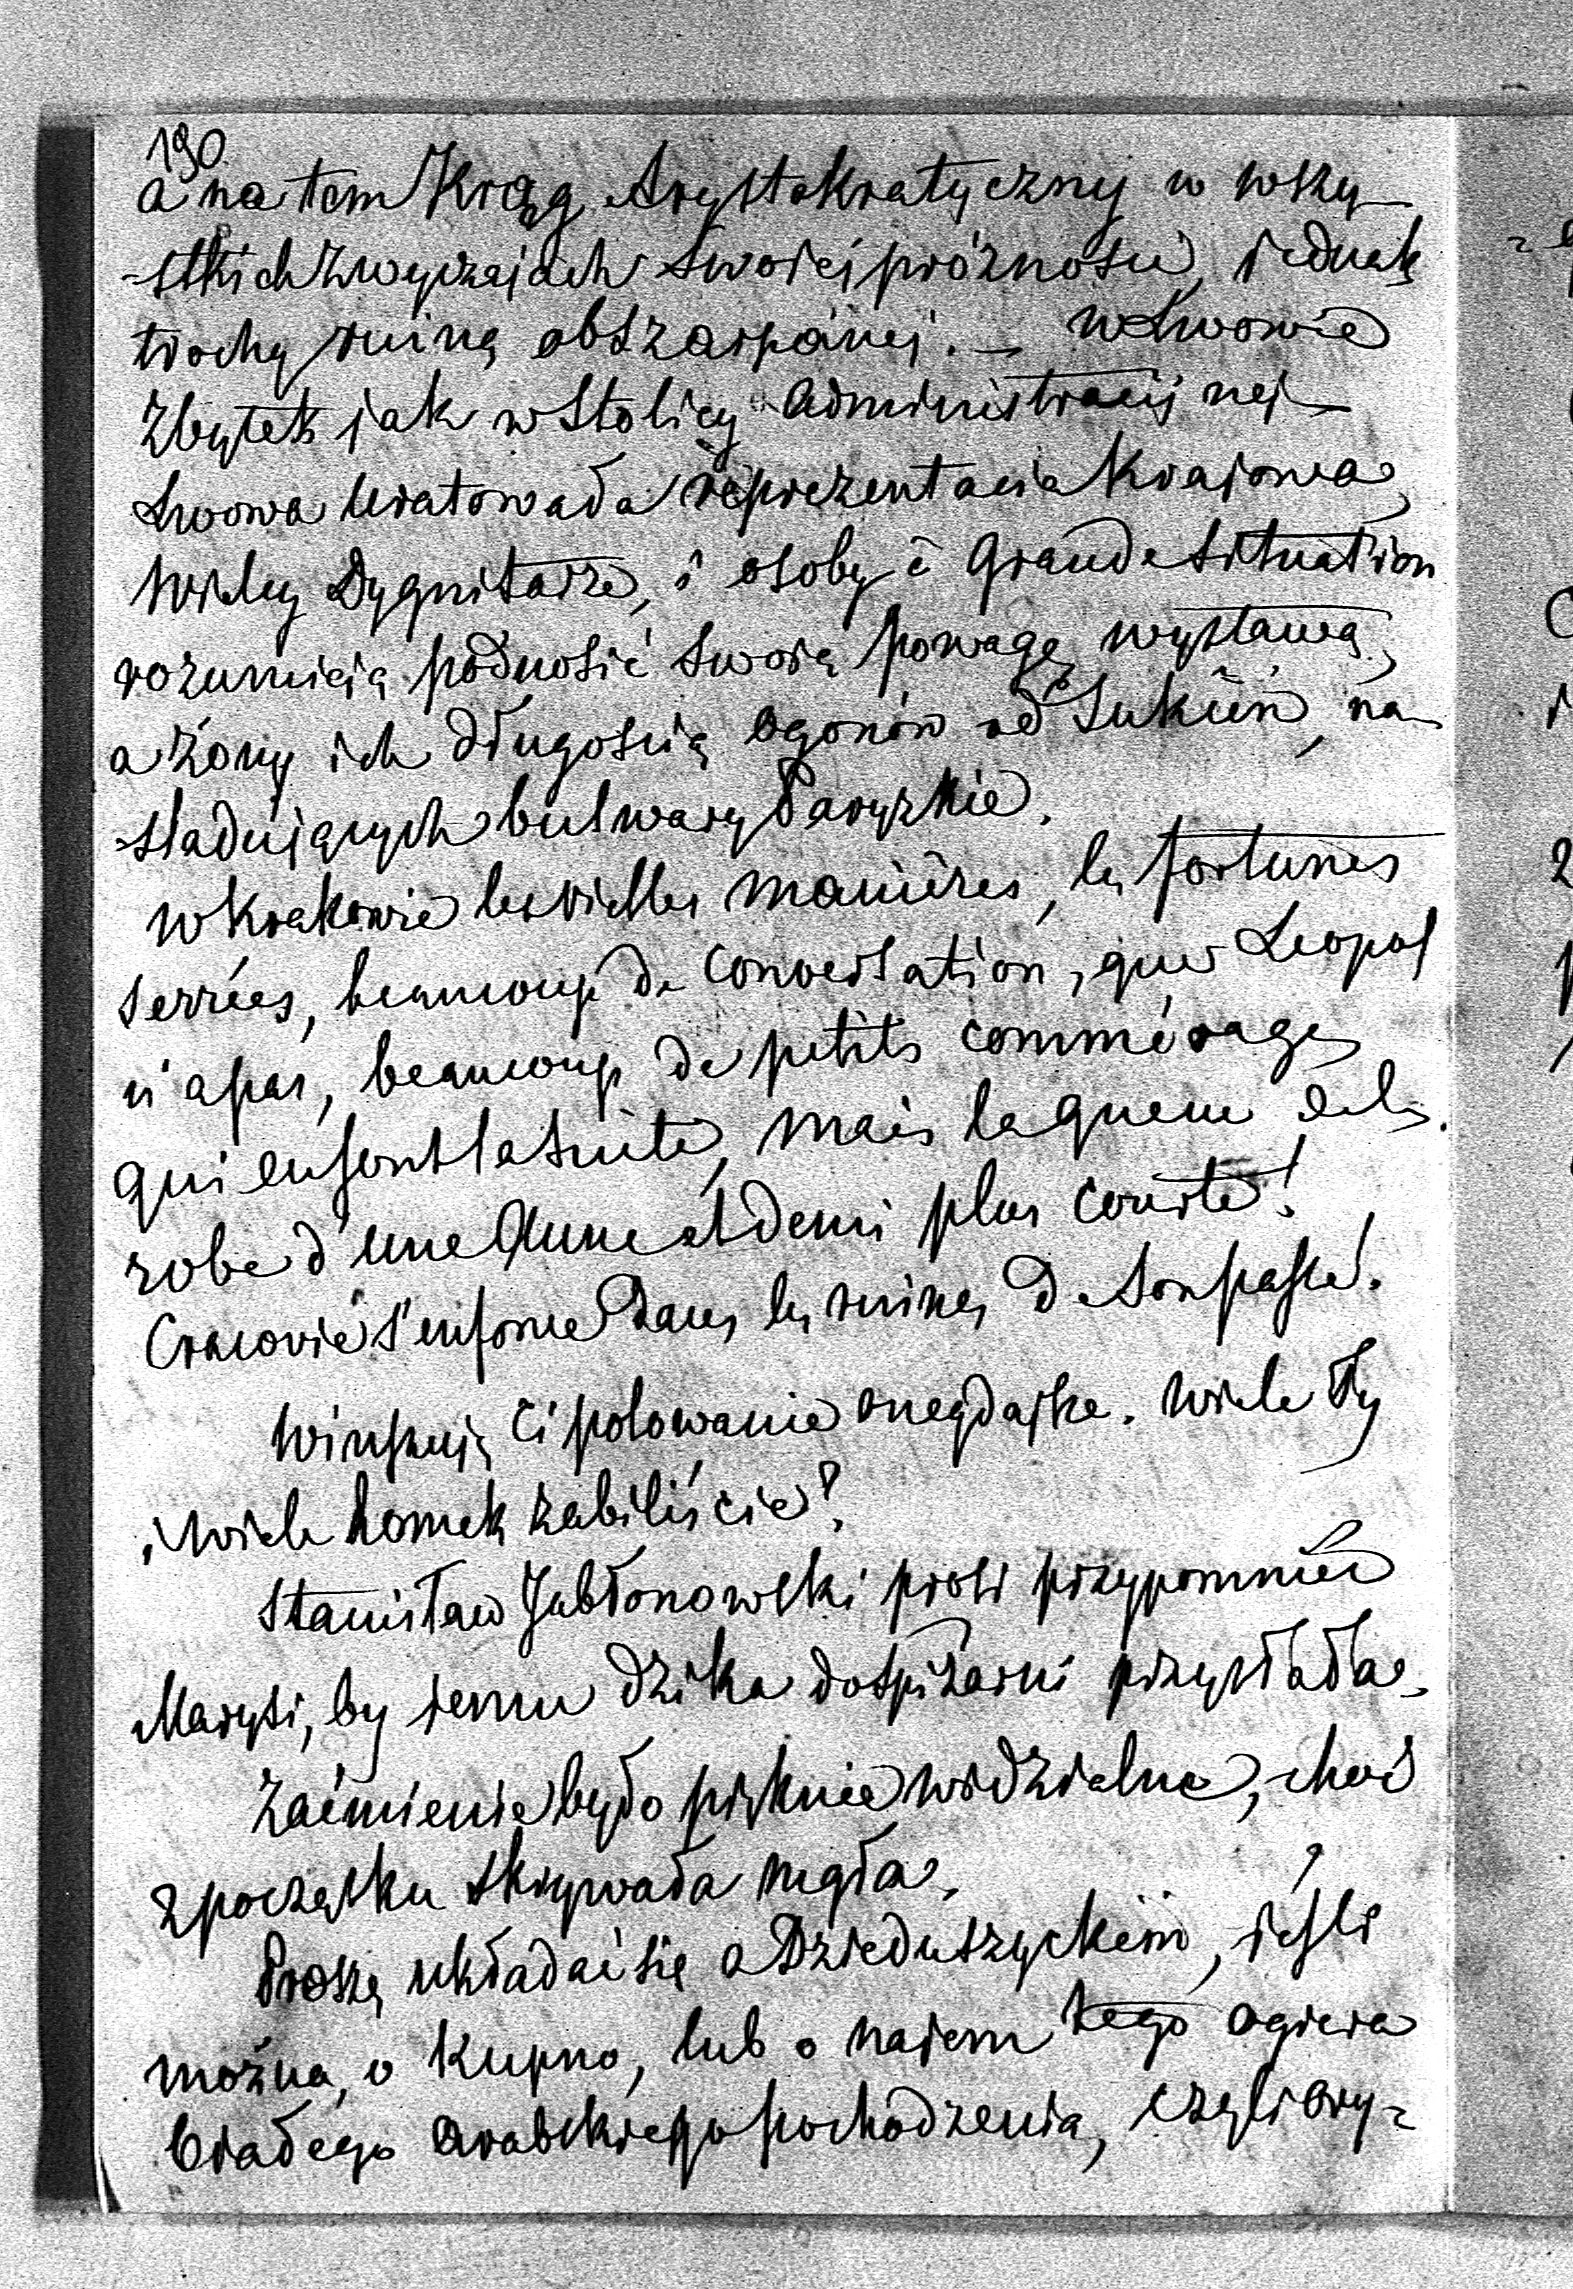 190
a na tem Krąg Arystokratyczny w wszy-
-stkich zwyczajach swojej próżności, jednak
trochę ruiną obszarpanej. – w Lwowie
Zbytek jak w Stolicy administracijnej –
Lwowa uratowała reprezentacia Krajowa,
wielcy Dygnitarze, i osoby à Grande situation
rozumieją podnosić swoią powagę wystawą,
a żony ich długością ogonów od Sukień, na-
-sladujących bulwary Paryzkie.
w Krakowie les vielles manières, les fortunes
serrées, beaucoup de conversation, que Leopol
n'a pas, beaucoup de petits commérages
qui en font la suite, mais la queue de la
robe d'une Aune et demi plus courte!
Cracovie s'enfonce dans les ruines de son passé.
Winszuię Ci polowanie onegdajsze. wiele Ty
i wiele Romek zabiliście?
Stanisław Jabłonowski prosi przypomnieć
Marysi, by jemu dzika do spiżarni przysłała.
Zaćmienie było pięknie widzialne, choć
z początku skrywała mgła.
Proszę układać się o Dzieduszyckim, jeśli
można, o Kupno, lub o najem tego ogiera
białego arabskiego pochodzenia, czyli ory-